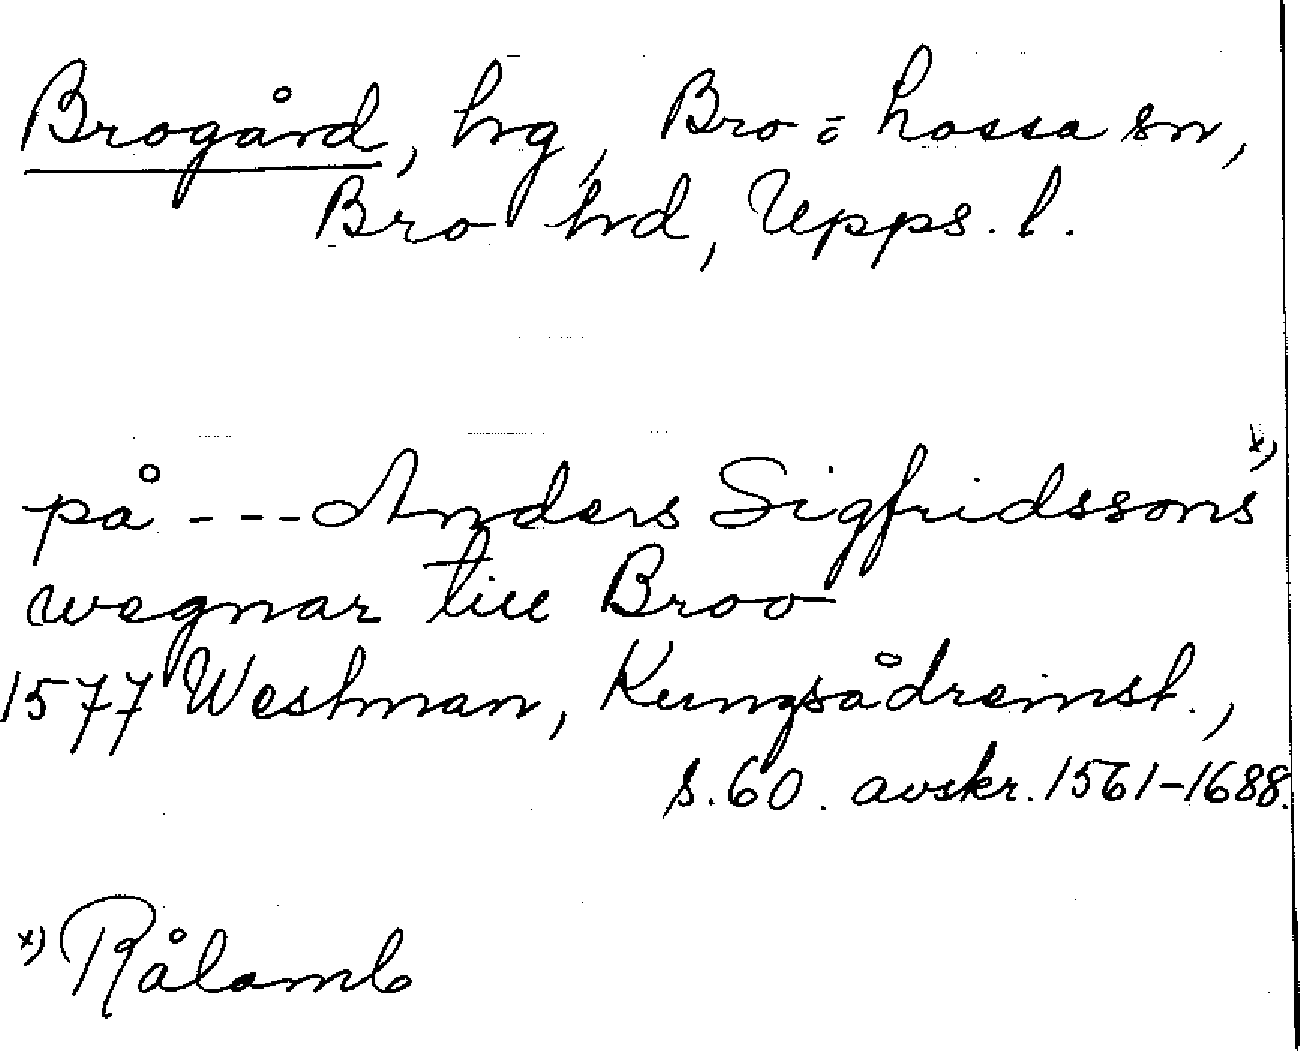 Brogård, hrg, Bro-Lossa sn,
Bro hd, Upps. l.
på --- Anders Sigfridssons x)
wegnar till Broo
1577 Westman, Kungsådreinst.,
s. 60. avskr. 1561-1688.
x) Rålamb